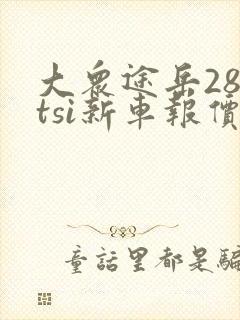 大衆途岳28
tsi新車報價
童話里都是騙